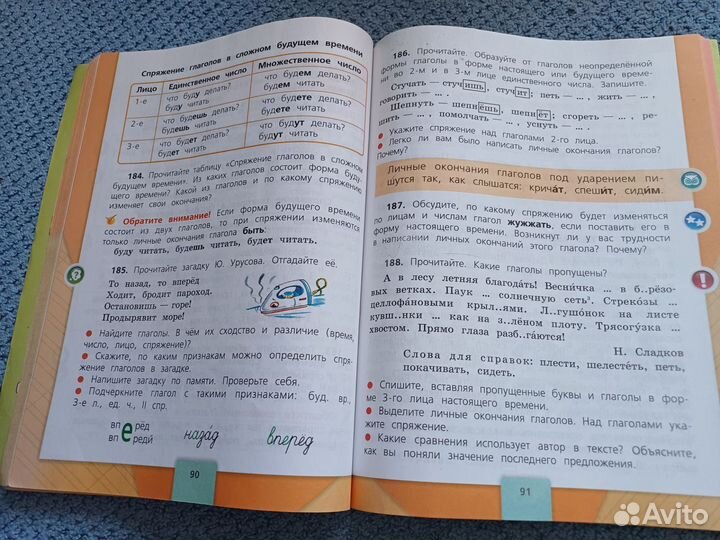 Спряжение глаголов в сложном будущем времени
Лицо Единственное число Множественное число
1-е что буду делать? что будем делать?
буду читать будем читать
2-е что будешь делать? что будете делать?
будешь читать будете читать
3-е что будет делать? что будут делать?
будет читать будут читать
184. Прочитайте таблицу «Спряжение глаголов в сложном
будущем времени». Из каких глаголов состоит форма буду-
щего времени? Какой из глаголов и по какому спряжению
изменяет свои окончания?
Обратите внимание! Если форма будущего времени
состоит из двух глаголов, то при спряжении изменяются
только личные окончания глагола быть:
буду читать, будешь читать, будет читать.
185. Прочитайте загадку Ю. Урусова. Отгадайте её.
То назад, то вперёд
Ходит, бродит пароход.
Остановишь — горе!
Продырявит море!
● Найдите глаголы. В чём их сходство и различие (время,
число, лицо, спряжение)?
● Скажите, по каким признакам можно определить спря-
жение глаголов в загадке.
● Напишите загадку по памяти. Проверьте себя.
● Подчеркните глагол с такими признаками: буд. вр.,
3-е л., ед. ч., II спр.
вперёд
впереди́
наза́д
вперёд
90
186. Прочитайте. Образуйте от глаголов неопределённой
формы глаголы в форме настоящего или будущего време-
ни во 2-м и в 3-м лице единственного числа. Запишите.
Стучать — стучишь, стучит; петь — ... , жить — ... ,
говорить — ... .
Шепнуть — шепнёшь, шепнёт; сгореть — ... , ре-
шить — ... , помолчать — ... , уснуть — ... .
● Укажите спряжение над глаголами 2-го лица.
● Легко ли вам было написать личные окончания глаголов?
Почему?
Личные окончания глаголов под ударением пи-
шутся так, как слышатся: крича́т, спеши́т, сиди́м.
187. Обсудите, по какому спряжению будет изменяться
по лицам и числам глагол жужжать, если поставить его в
форму настоящего времени. Возникнут ли у вас трудности
в написании личных окончаний этого глагола? Почему?
188. Прочитайте. Какие глаголы пропущены?
А в лесу летняя благода́ть! Весни́чка ... в б..рёзо-
вых ветках. Паук ... солнечную сеть³. Стреко́зы ...
целлофа́новыми крыл..ями. Л..гушо́нок на листе
кувш..нки ... как на з..лёном плоту. Трясогу́зка ...
хвостом. Прямо глаза разб..га́ются!
Н. Сладков
Слова для справок: плести, шелесте́ть, петь,
покачивать, сидеть.
● Спишите, вставляя пропущенные буквы и глаголы в фор-
ме 3-го лица настоящего времени.
● Выделите личные окончания глаголов. Над глаголами ука-
жите спряжение.
● Какие сравнения использует автор в тексте? Объясните,
как вы поняли значение последнего предложения.
91
Avito